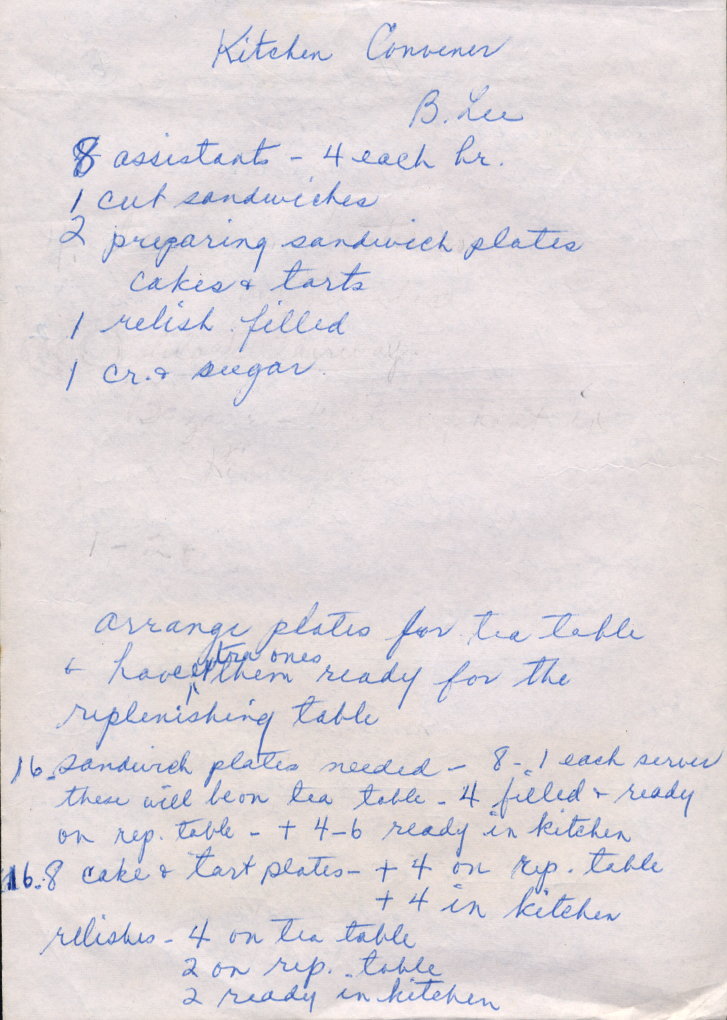 Kitchen Convener
B. Lee
8 assistants - 4 each hr.
1 cut sandwiches
2 preparing sandwich plates
cakes & tarts
1 relish filled
1 cr. & sugar
arrange plates for tea table
extra ones
& have them ready for the
replenishing table
16 - sandwich plates needed - 8 - 1 each server
these will be on tea table - 4 filled & ready
on rep. table - + 4-6 ready in kitchen
16 - 8 cake & tart plates - + 4 on rep. table
+ 4 in kitchen
relishes - 4 on tea table
2 on rep. table
2 ready in kitchen